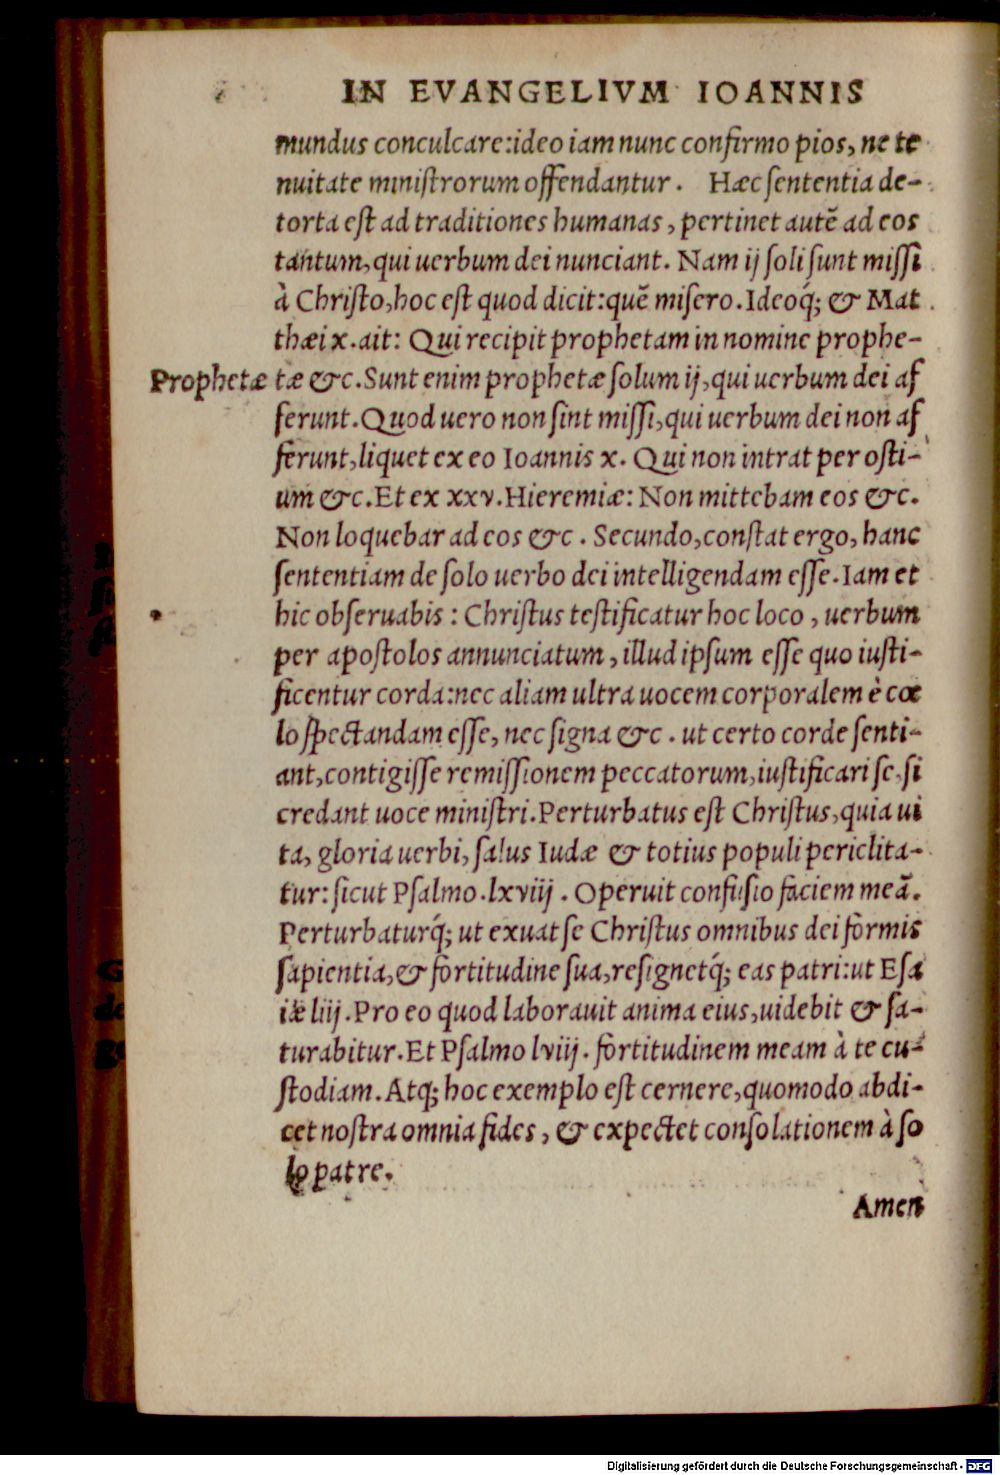 IN EVANGELIVM IOANNIS
mundus conculcare:ideo iam nunc confirmo pios, ne te
nuitate miniſtrorum offendantur. Hæc ſententia de-
torta eſt ad traditiones humanas, pertinet autẽ ad eos
tantum, qui uerbum dei nunciant. Nam ij ſoli ſunt miſſi
à Chriſto, hoc eſt quod dicit:quẽ miſero. Ideoq́; & Mat
thæi x. ait: Qui recipit prophetam in nomine prophe-
Prophetæ tæ &c. Sunt enim prophetæ ſolum ij, qui uerbum dei af
ferunt. Quod uero non ſint miſſi, qui uerbum dei non af
ferunt, liquet ex eo Ioannis x. Qui non intrat per oſti-
um &c. Et ex xxv. Hieremiæ: Non mittebam eos &c.
Non loquebar ad eos &c. Secundo, conſtat ergo, hanc
ſententiam de ſolo uerbo dei intelligendam eſſe. Iam et
hic obſeruabis: Chriſtus teſtificatur hoc loco, uerbum
per apoſtolos annunciatum, illud ipſum eſſe quo iuſti-
ficentur corda:nec aliam ultra uocem corporalem è cœ
lo ſpectandam eſſe, nec ſigna &c. ut certo corde ſenti-
ant, contigiſſe remiſſionem peccatorum, iuſtificari ſe, ſi
credant uoce miniſtri. Perturbatus eſt Chriſtus, quia ui
ta, gloria uerbi, ſalus Iudæ & totius populi periclita-
tur: ſicut Pſalmo. lxviij. Operuit confuſio faciem meã.
Perturbaturq́; ut exuat ſe Chriſtus omnibus dei formis
ſapientia, & fortitudine ſua, reſignetq́; eas patri:ut Eſa
iæ liij. Pro eo quod laborauit anima eius, uidebit & ſa-
turabitur. Et Pſalmo lviij. fortitudinem meam à te cu-
ſtodiam. Atq; hoc exemplo eſt cernere, quomodo abdi-
cet noſtra omnia fides, & expectet conſolationem à ſo
lo patre.
Amen
Digitalisierung gefördert durch die Deutsche Forschungsgemeinschaft - DFG